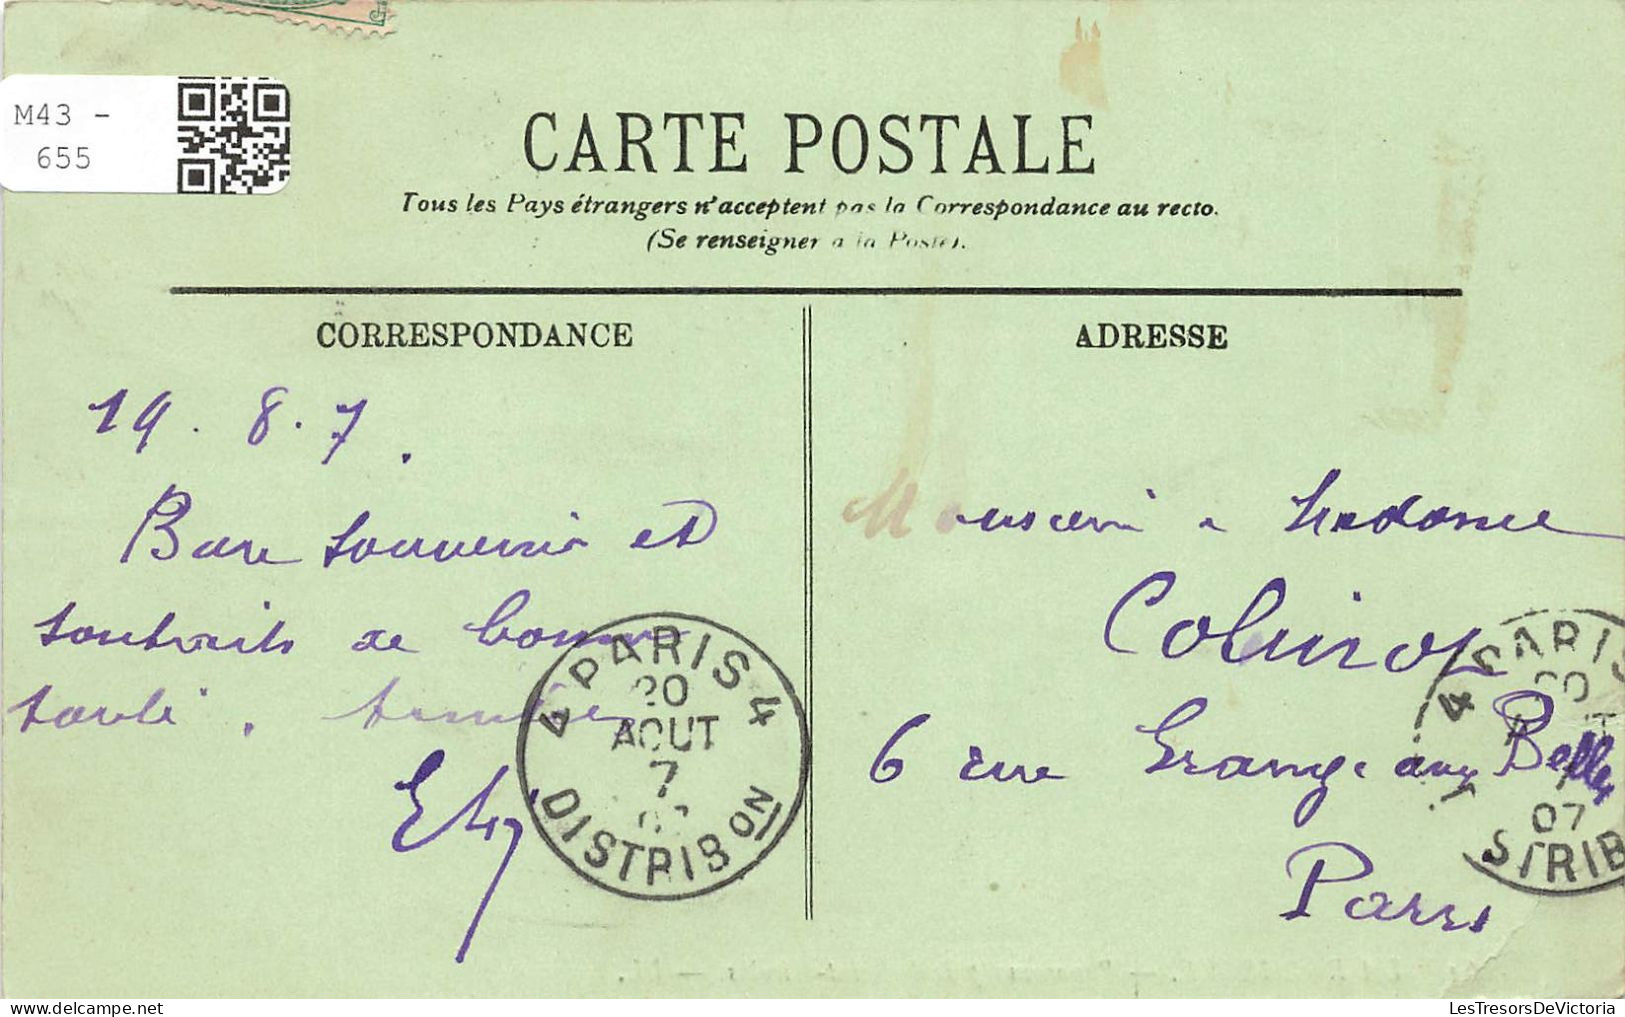 M43 -
655
CARTE POSTALE
Tous les Pays étrangers n'acceptent pas la Correspondance au recto.
(Se renseigner à la Poste).
CORRESPONDANCE
19. 8. 7.
souvenir et
souhaits de bonne
santé.
ADRESSE
Monsieur & Madame
6 rue Grange aux Belles
Paris
4 PARIS 4
20
AOUT
7
DISTRIBON
4 PARIS
20
07
STRIB
LesTresorsDeVictoria